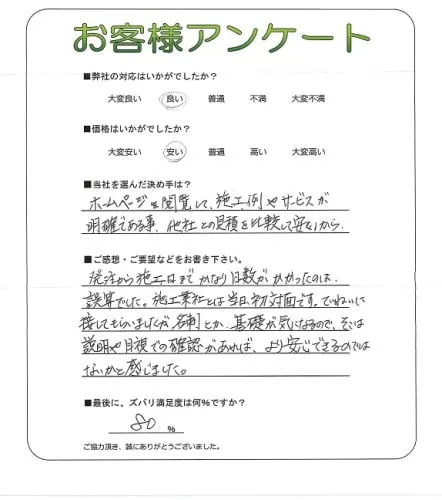 お客様アンケート
■弊社の対応はいかがでしたか?
大変良い 良い 普通 不満 大変不満
■価格はいかがでしたか?
大変安い 安い 普通 高い 大変高い
■当社を選んだ決め手は?
ホームページを閲覧して、施工例やサービスが
明確である事、他社との見積を比較して安いから
■ご感想・ご要望などをお書き下さい。
発注から施工日までかなり日数がかかったのは、
誤算でした。施工業社とは当日、初対面です。ていねいに
接してもらいましたが、とか、基礎が気になるので、そこは
説明や目視での確認があれば、より安心できるのでは
ないかと感じました。
■最後に、ズバリ満足度は何%ですか?
80 %
ご協力頂き、誠にありがとうございました。